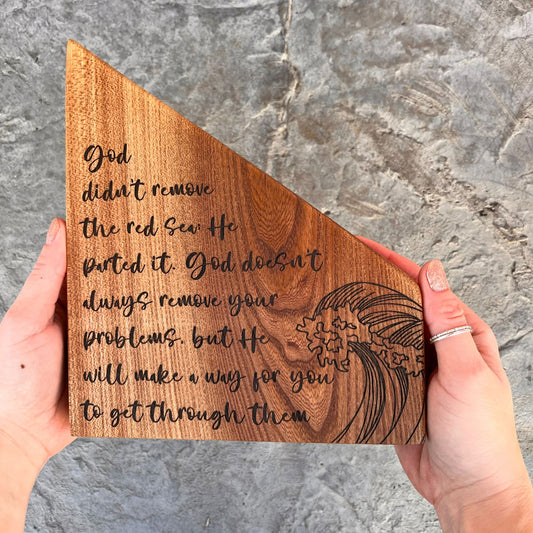 God
didn't remove
the red sea He
parted it. God doesn't
always remove your
problems, but He
will make a way for you
to get through them